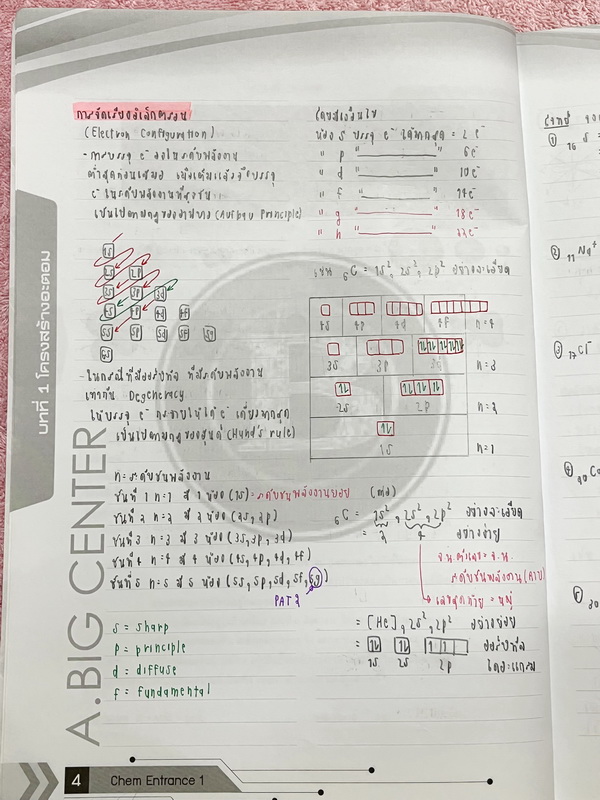 การจัดเรียงอิเล็กตรอน
(Electron Configuration)
- การบรรจุ e⁻ ลงในระดับพลังงาน
ต่ำสุดก่อนเสมอ
e⁻ ในระดับพลังงานที่สูงขึ้น
เป็นไปตามกฎของอาฟบาว (Aufbau Principle)
1s
2s 2p
3s 3p 3d
4s 4p 4d 4f
5s 5p 5d 5f 5g
6s
- ในกรณีที่มีออร์บิทัล ที่มีระดับพลังงาน
เท่ากัน Degeneracy
ให้บรรจุ e⁻
เป็นไปตามกฎของฮุนด์ (Hund's rule)
n = ระดับชั้นพลังงาน
ชั้นที่ 1 n=1 มี 1 ห้อง (1s) = ระดับชั้นพลังงานย่อย
ชั้นที่ 2 n=2 มี 2 ห้อง (2s, 2p)
ชั้นที่ 3 n=3 มี 3 ห้อง (3s, 3p, 3d)
ชั้นที่ 4 n=4 มี 4 ห้อง (4s, 4p, 4d, 4f)
ชั้นที่ 5 n=5 มี 5 ห้อง (5s, 5p, 5d, 5f, 5g)
PAT 2
s = sharp
p = principle
d = diffuse
f = fundamental
โดยมีเงื่อนไข
ห้อง s บรรจุ e⁻ ได้มากสุด = 2 e⁻
" p " 6e⁻
" d " 10e⁻
" f " 14e⁻
" g " 18e⁻
" h " 22e⁻
เช่น ₆C = 1s², 2s², 2p² อย่างละเอียด
4s 4p 4d 4f n=4
3s 3p 3d n=3
2s 2p n=2
1s n=1
₆C = 1s², 2s², 2p² อย่างละเอียด
= 2 4 อย่างง่าย
ระดับชั้นพลังงาน (คาบ)
เลขสุดท้าย = หมู่
= [He], 2s², 2p² อย่างย่อ
= ออร์บิทัล
1s 2s 2p ไดอะแกรม
① ₁₆S =
② ₁₁Na⁺
③ ₁₇Cl⁻
บทที่ 1 โครงสร้างอะตอม
A.BIG CENTER
4 Chem Entrance 1